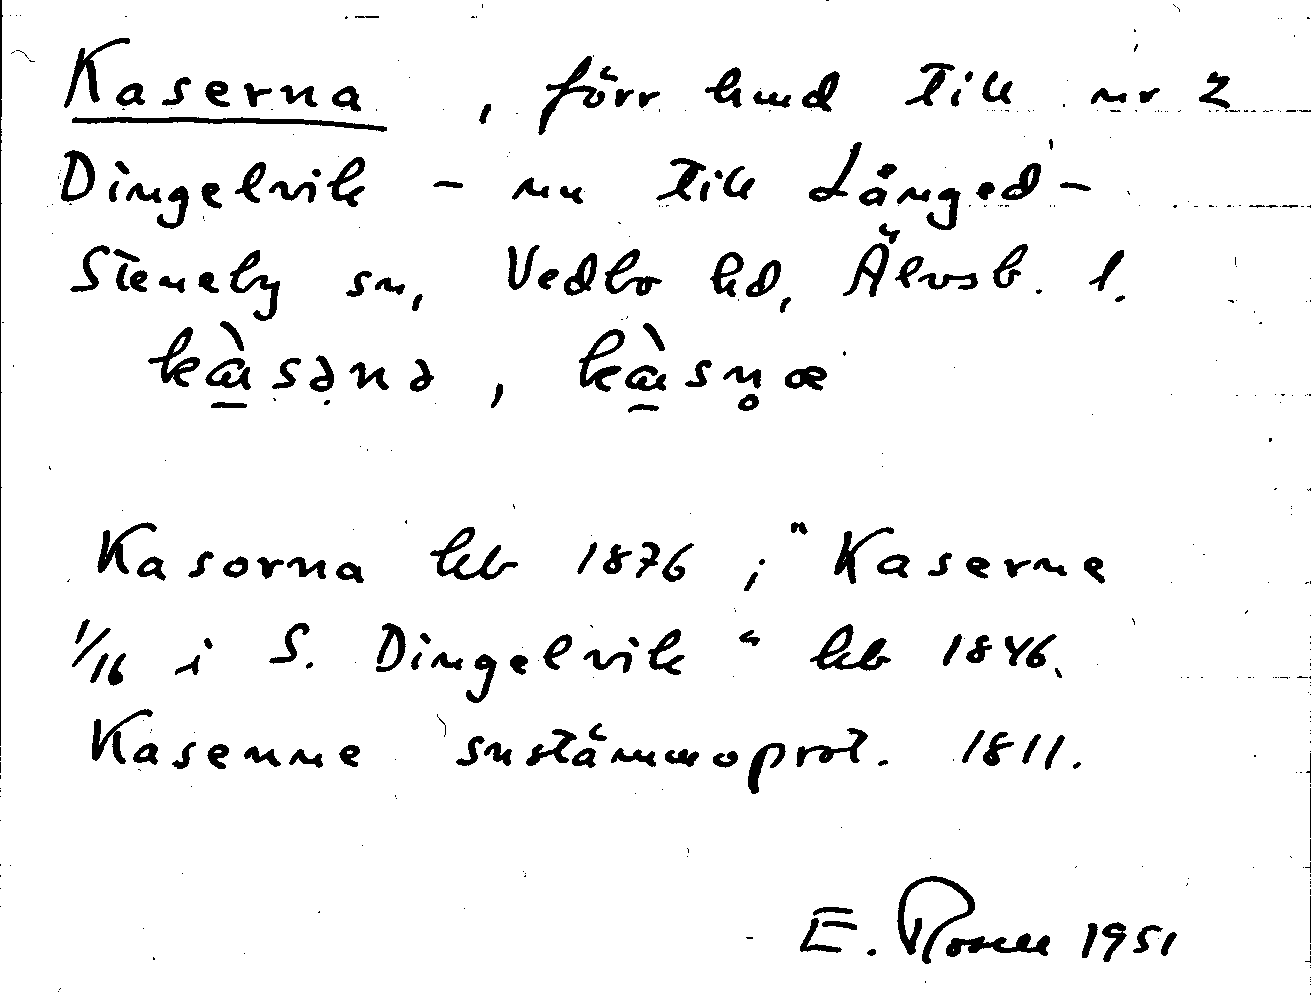 Kaserna , förr hmd till nr 2
Dingelvik - nu till Långed -
Steneby sn, Vedbo hd, Älvsb. l.
kàsənə , kàsn̥æ
Kasorna hfb 1876 ; "Kaserne
1/16 i S. Dingelvik" hfb 1846.
Kasenne snstämmoprot. 1811.
E. Rosell 1951